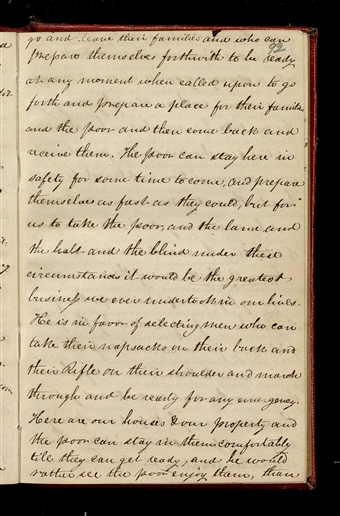 go and leave their families and who can
92
prepare themselves forthwith to be ready
at any moment when called upon to go
forth and prepare a place for their families
and the poor and then come back and
receive them. The poor can stay here in
safety for some time to come, and prepare
themselves as fast as they could, but for
us to take the poor, and the lame and
the halt and the blind under these
circumstances it would be the greatest
business we ever undertook in our lives.
He is in favor of selecting men who can
take their napsacks on their back and
their Rifle on their shoulder and march
through and be ready for any emergency.
Here are our houses & our property and
the poor can stay in them comfortably
till they can get ready, and he would
rather see the poor enjoy them, than